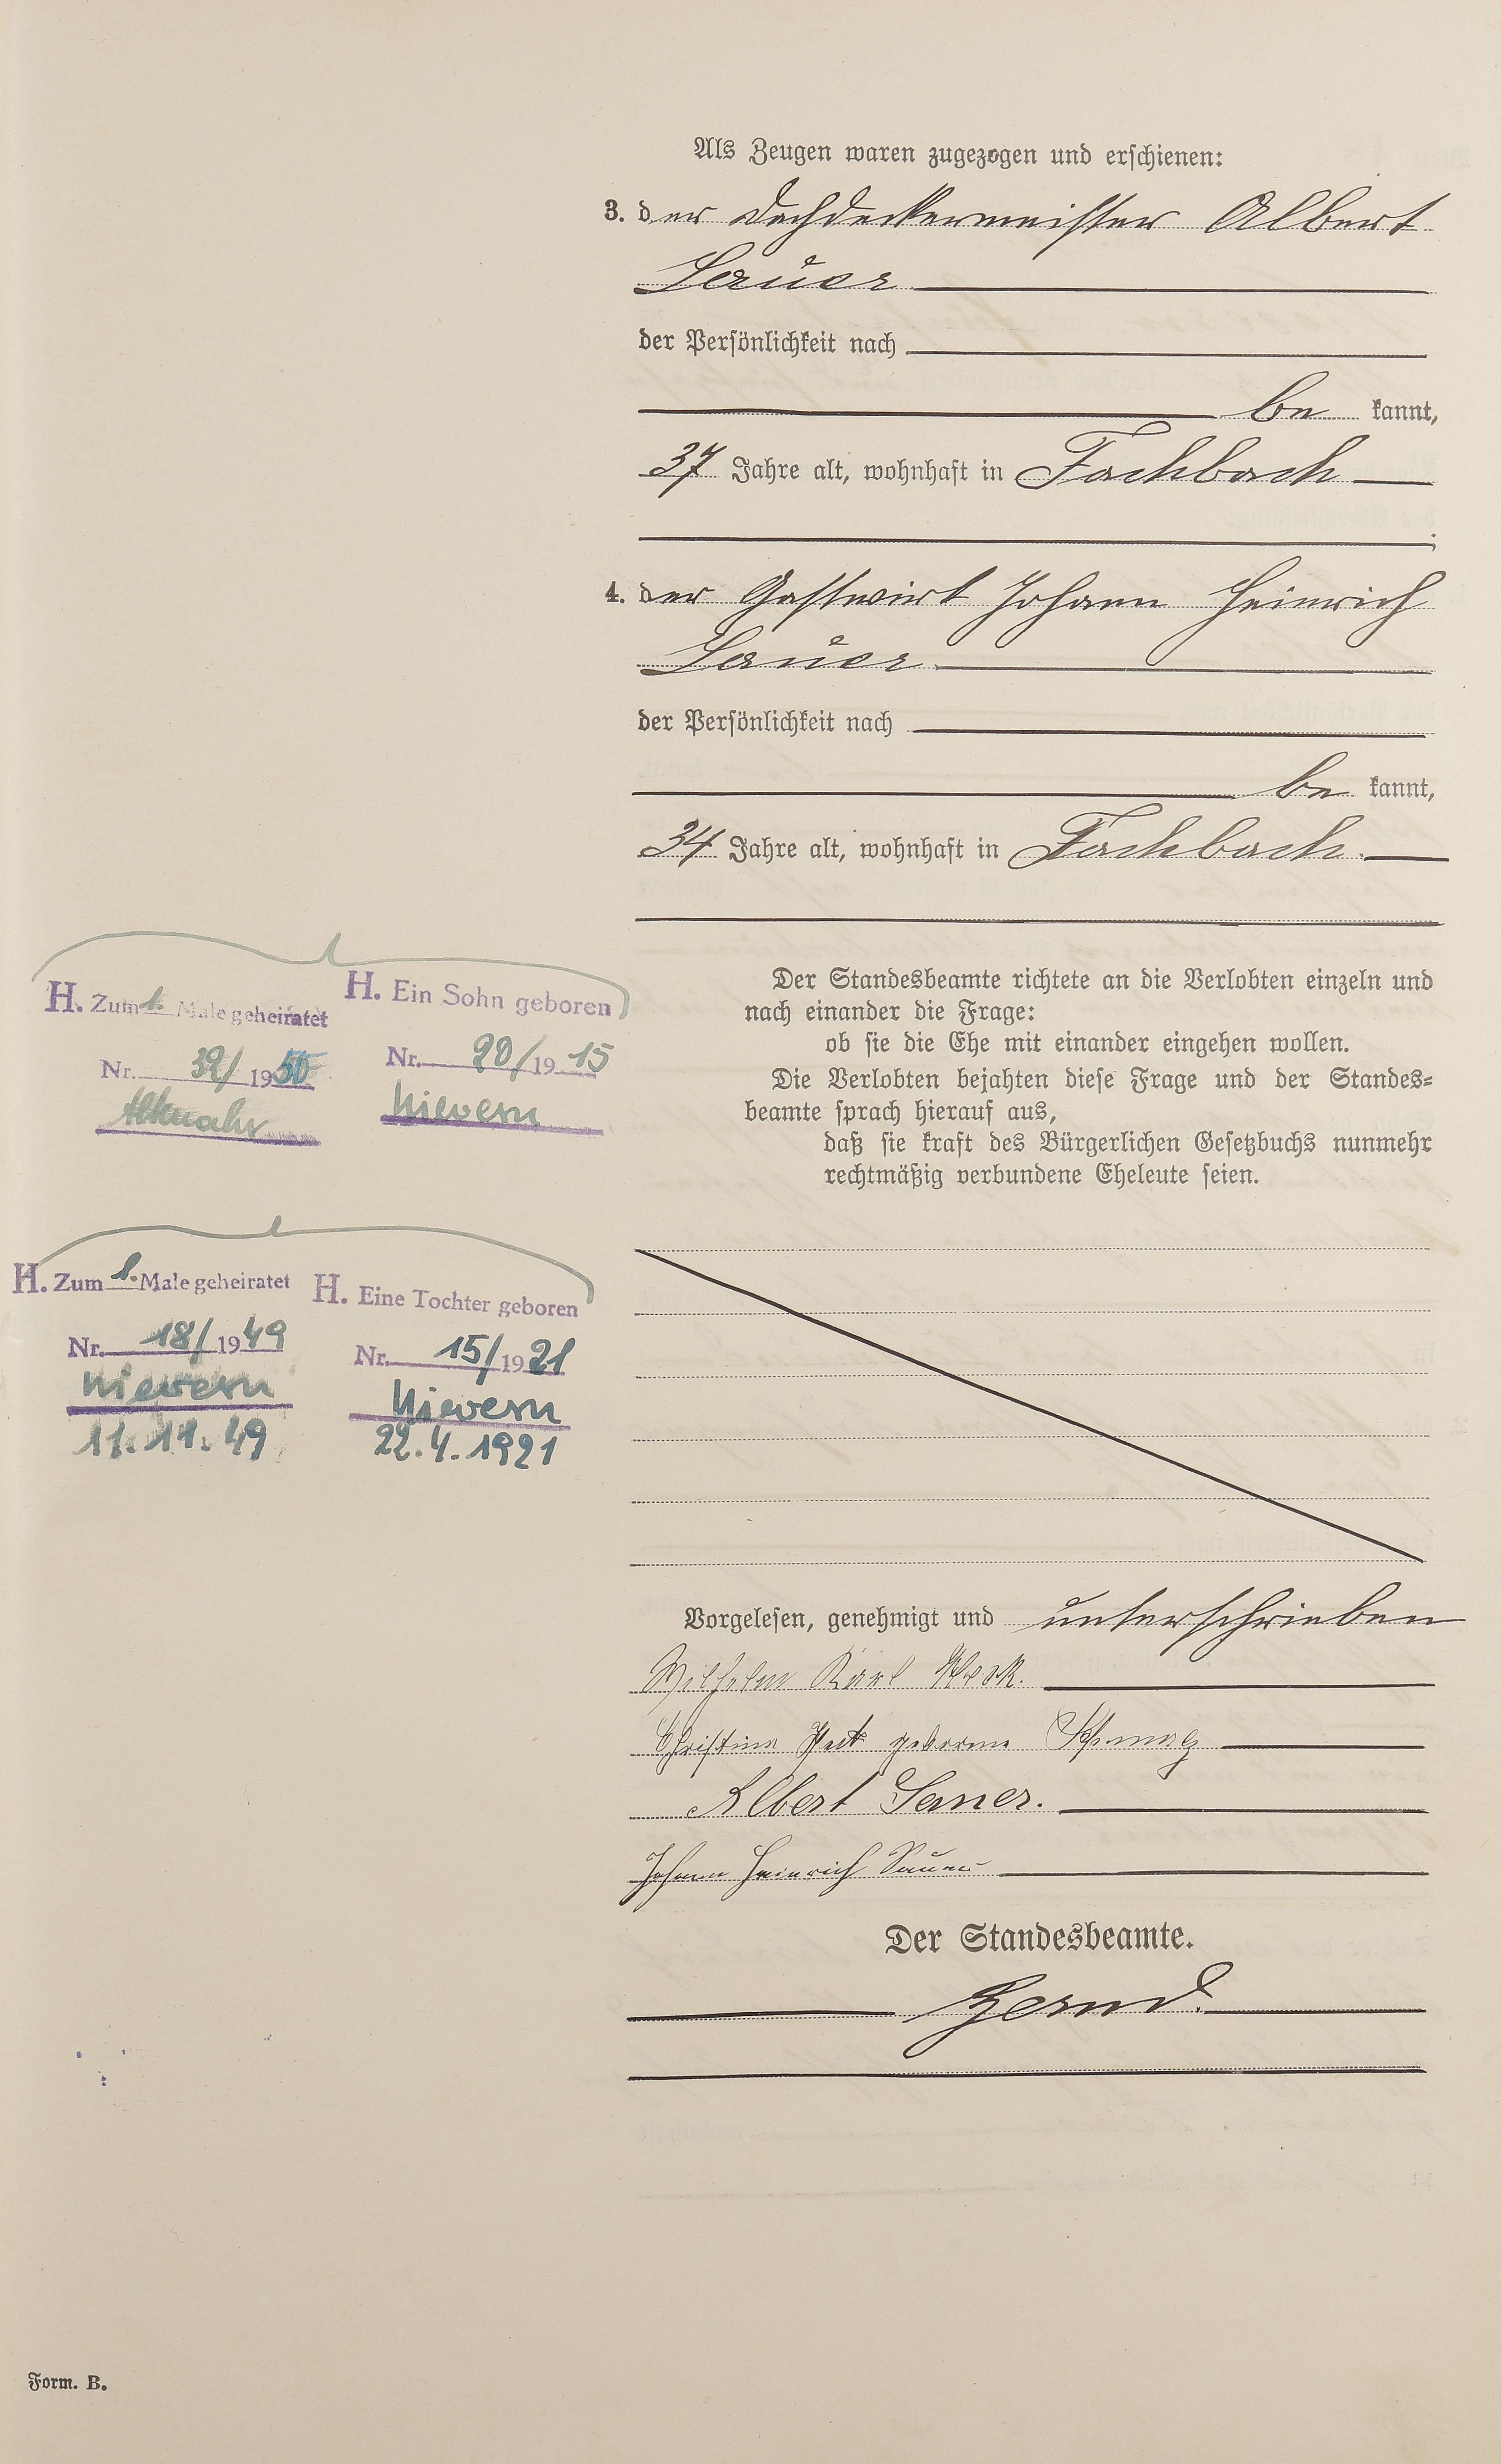 Als Zeugen waren zugezogen und erschienen:
3. der Dachdeckermeister Albert
Sauer
der Persönlichkeit nach
be kannt,
37 Jahre alt, wohnhaft in Fachbach
;
4. der Gastwirt Johann Heinrich
Sauer
der Persönlichkeit nach
be kannt,
34 Jahre alt, wohnhaft in Fachbach.
Der Standesbeamte richtete an die Verlobten einzeln und
nach einander die Frage:
ob sie die Ehe mit einander eingehen wollen.
Die Verlobten bejahten diese Frage und der Standes=
beamte sprach hierauf aus,
daß sie kraft des Bürgerlichen Gesetzbuchs nunmehr
rechtmäßig verbundene Eheleute seien.
H. Zum 1. Male geheiratet
Nr. 32/1950
Altenahr
H. Ein Sohn geboren
Nr. 20/1915
Nievern
H. Zum 1. Male geheiratet
Nr. 18/1949
Nievern
11.11.49
H. Eine Tochter geboren
Nr. 15/1921
Nievern
22.4.1921
Vorgelesen, genehmigt und unterschrieben
Wilhelm Karl
Christine geborene
Albert Sauer.
Johann Heinrich Sauer
Der Standesbeamte.
Form. B.